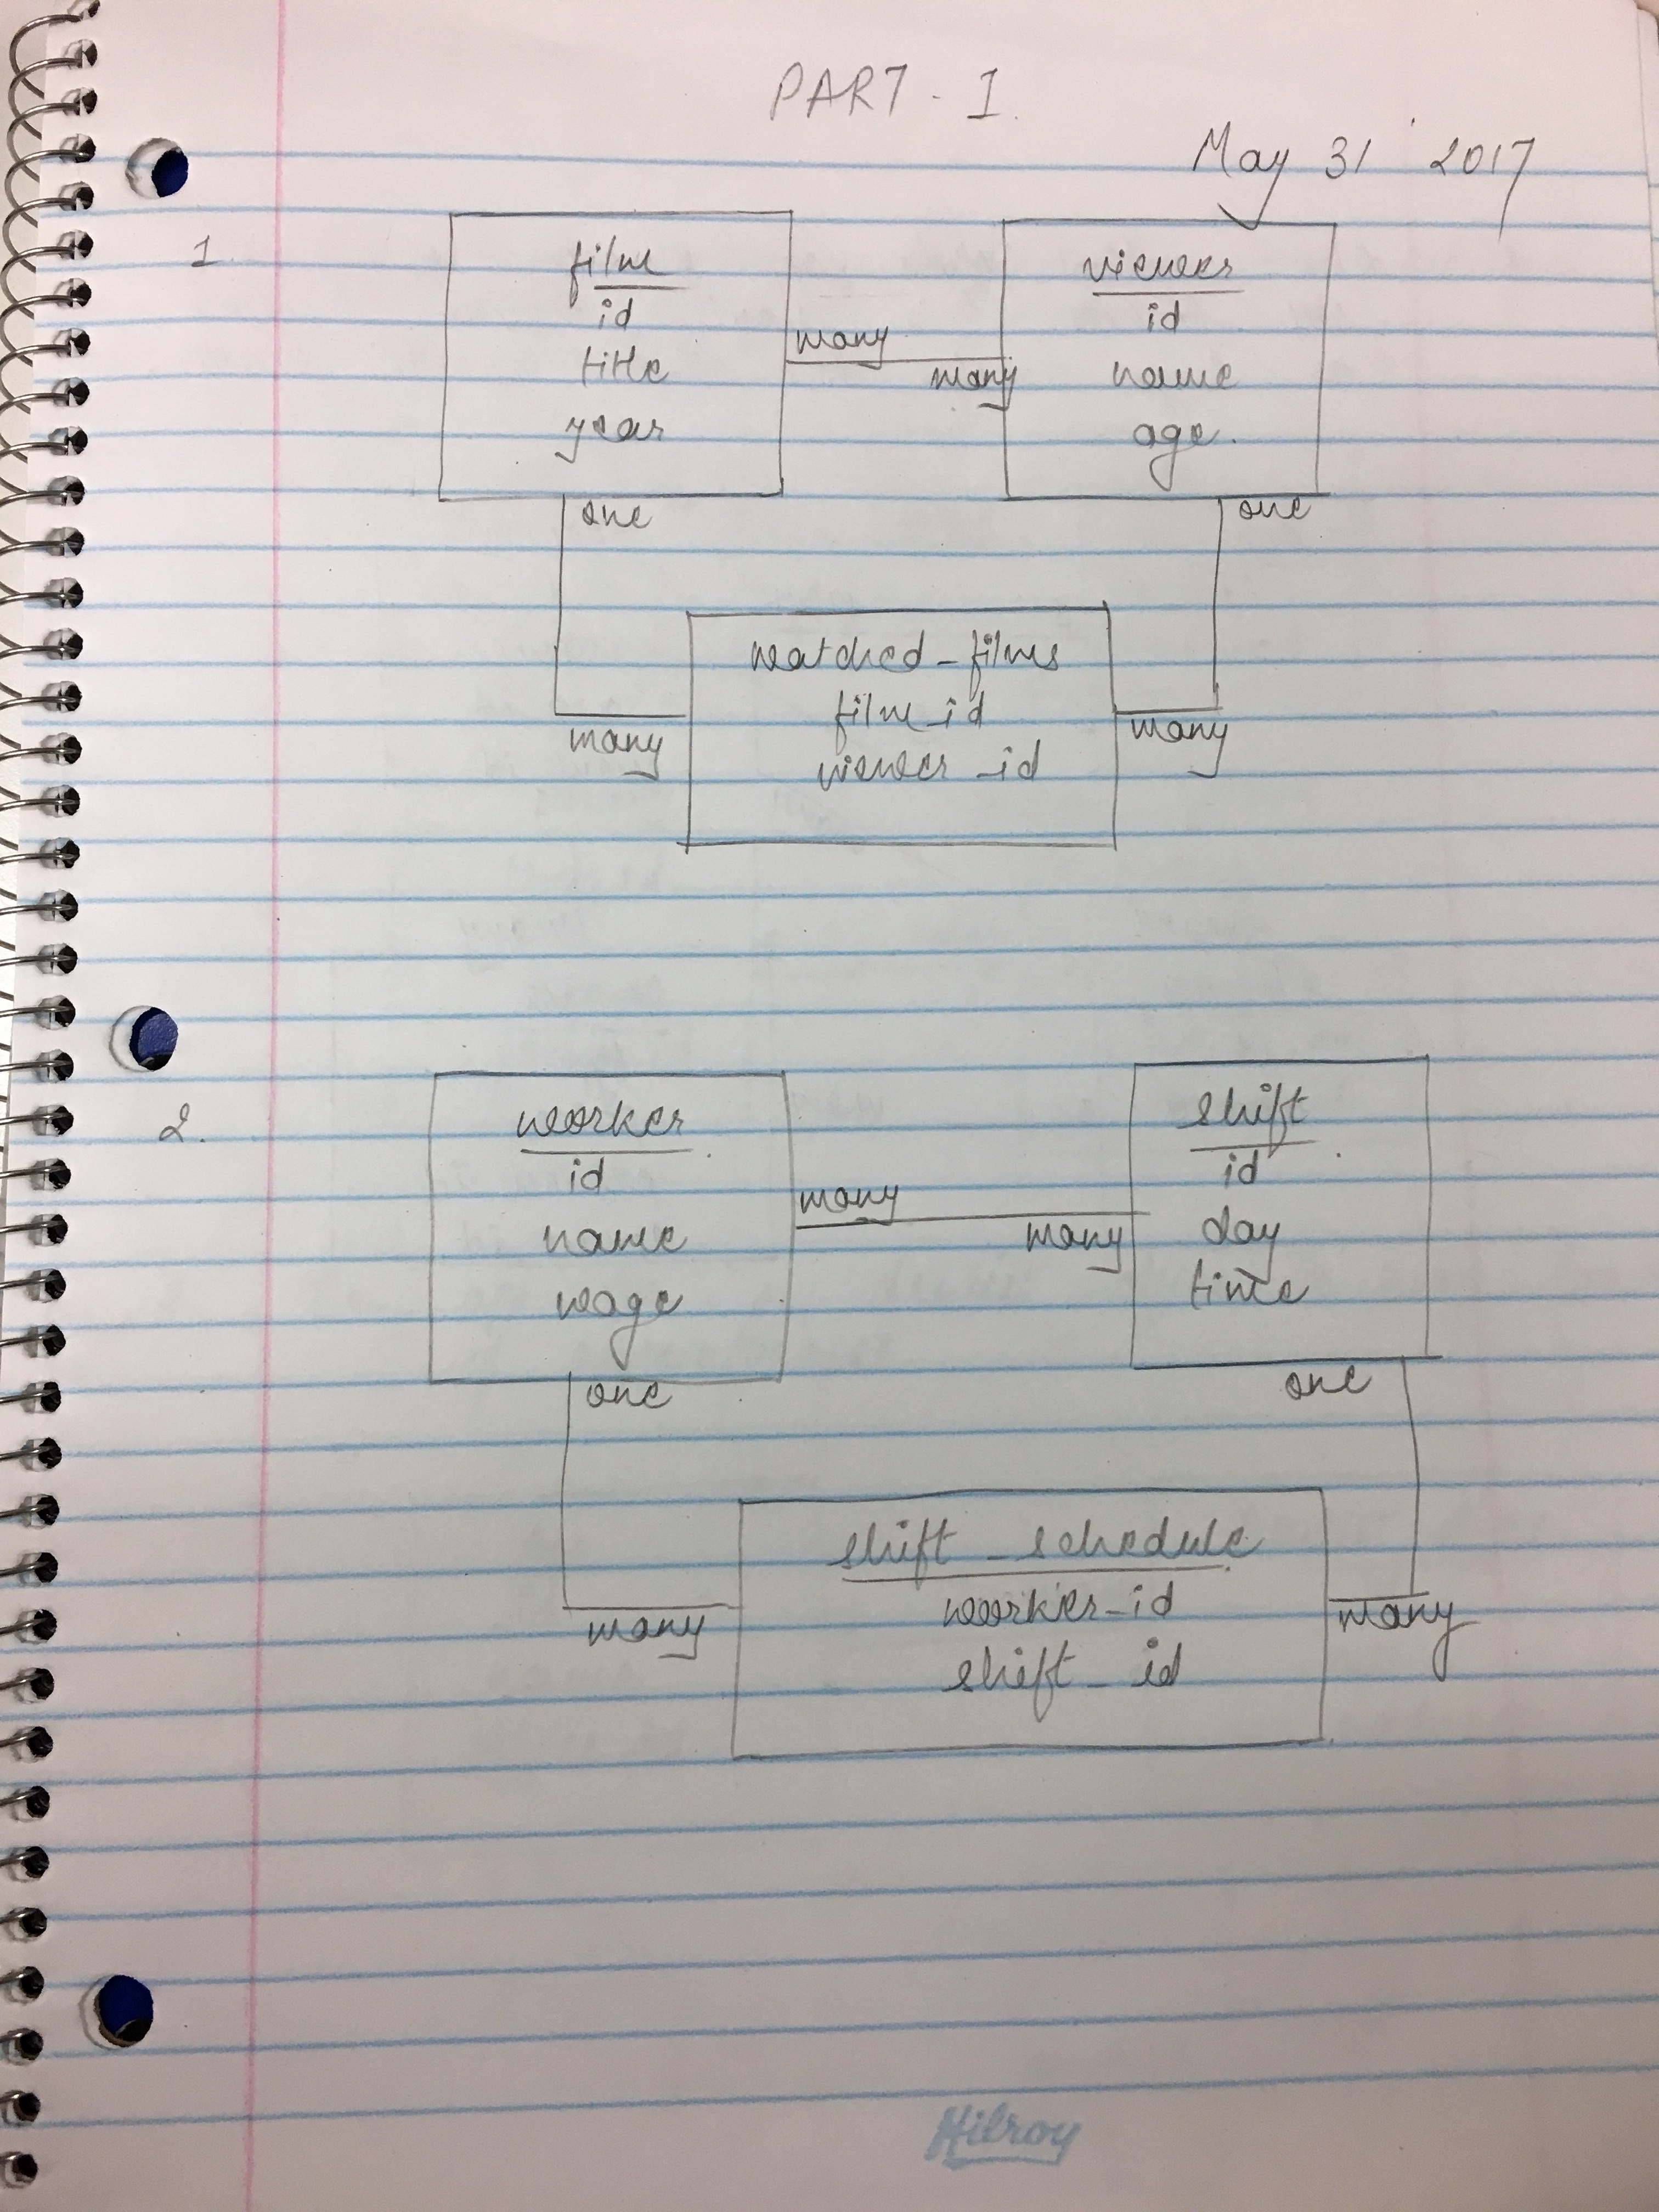 PART - I
May 31 2017
1.
film
id
title
year
many
many
viewer
id
name
age.
one
one
watched_films
film_id
viewer_id
many
many
2.
worker
id
name
wage
many
many
shift
id
day
time
one
one
shift_schedule
worker_id
shift_id
many
many
Hilroy